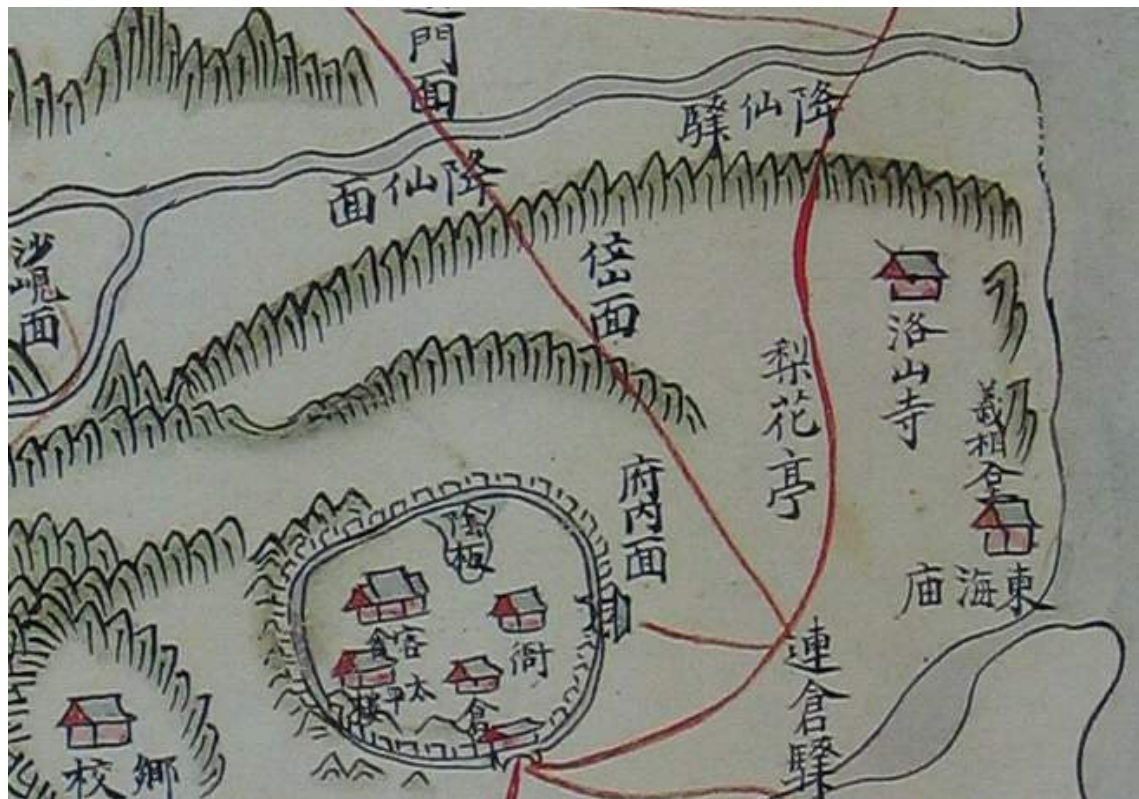 門面
降仙驛
降仙面
沙峴面
位山面
洛山寺
梨花亭
義相台
府內面
陰板
東海庙
客舍
衙
太平樓
倉
連倉驛
鄉校